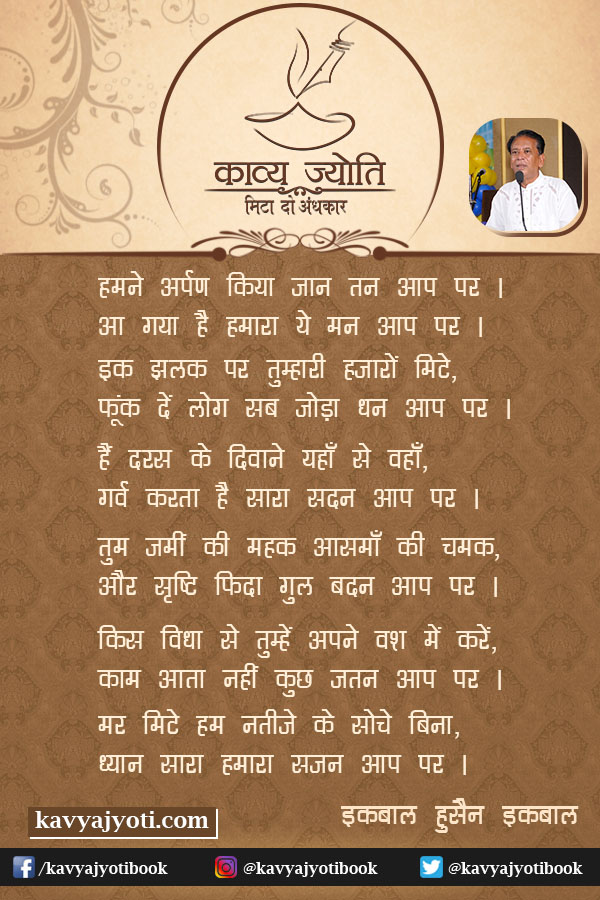 काव्य ज्योति
मिटा दो अंधकार
हमने अर्पण किया जान तन आप पर ।
आ गया है हमारा ये मन आप पर ।
इक झलक पर तुम्हारी हजारों मिटे,
फूंक दें लोग सब जोड़ा धन आप पर ।
हैं दरस के दिवाने यहाँ से वहाँ,
गर्व करता है सारा सदन आप पर ।
तुम जमीं की महक आसमाँ की चमक,
और सृष्टि फिदा गुल बदन आप पर ।
किस विधा से तुम्हें अपने वश में करें,
काम आता नहीं कुछ जतन आप पर ।
मर मिटे हम नतीजे के सोचे बिना,
ध्यान सारा हमारा सजन आप पर ।
इकबाल हुसैन इकबाल
kavyajyoti.com
/kavyajyotibook @kavyajyotibook @kavyajyotibook